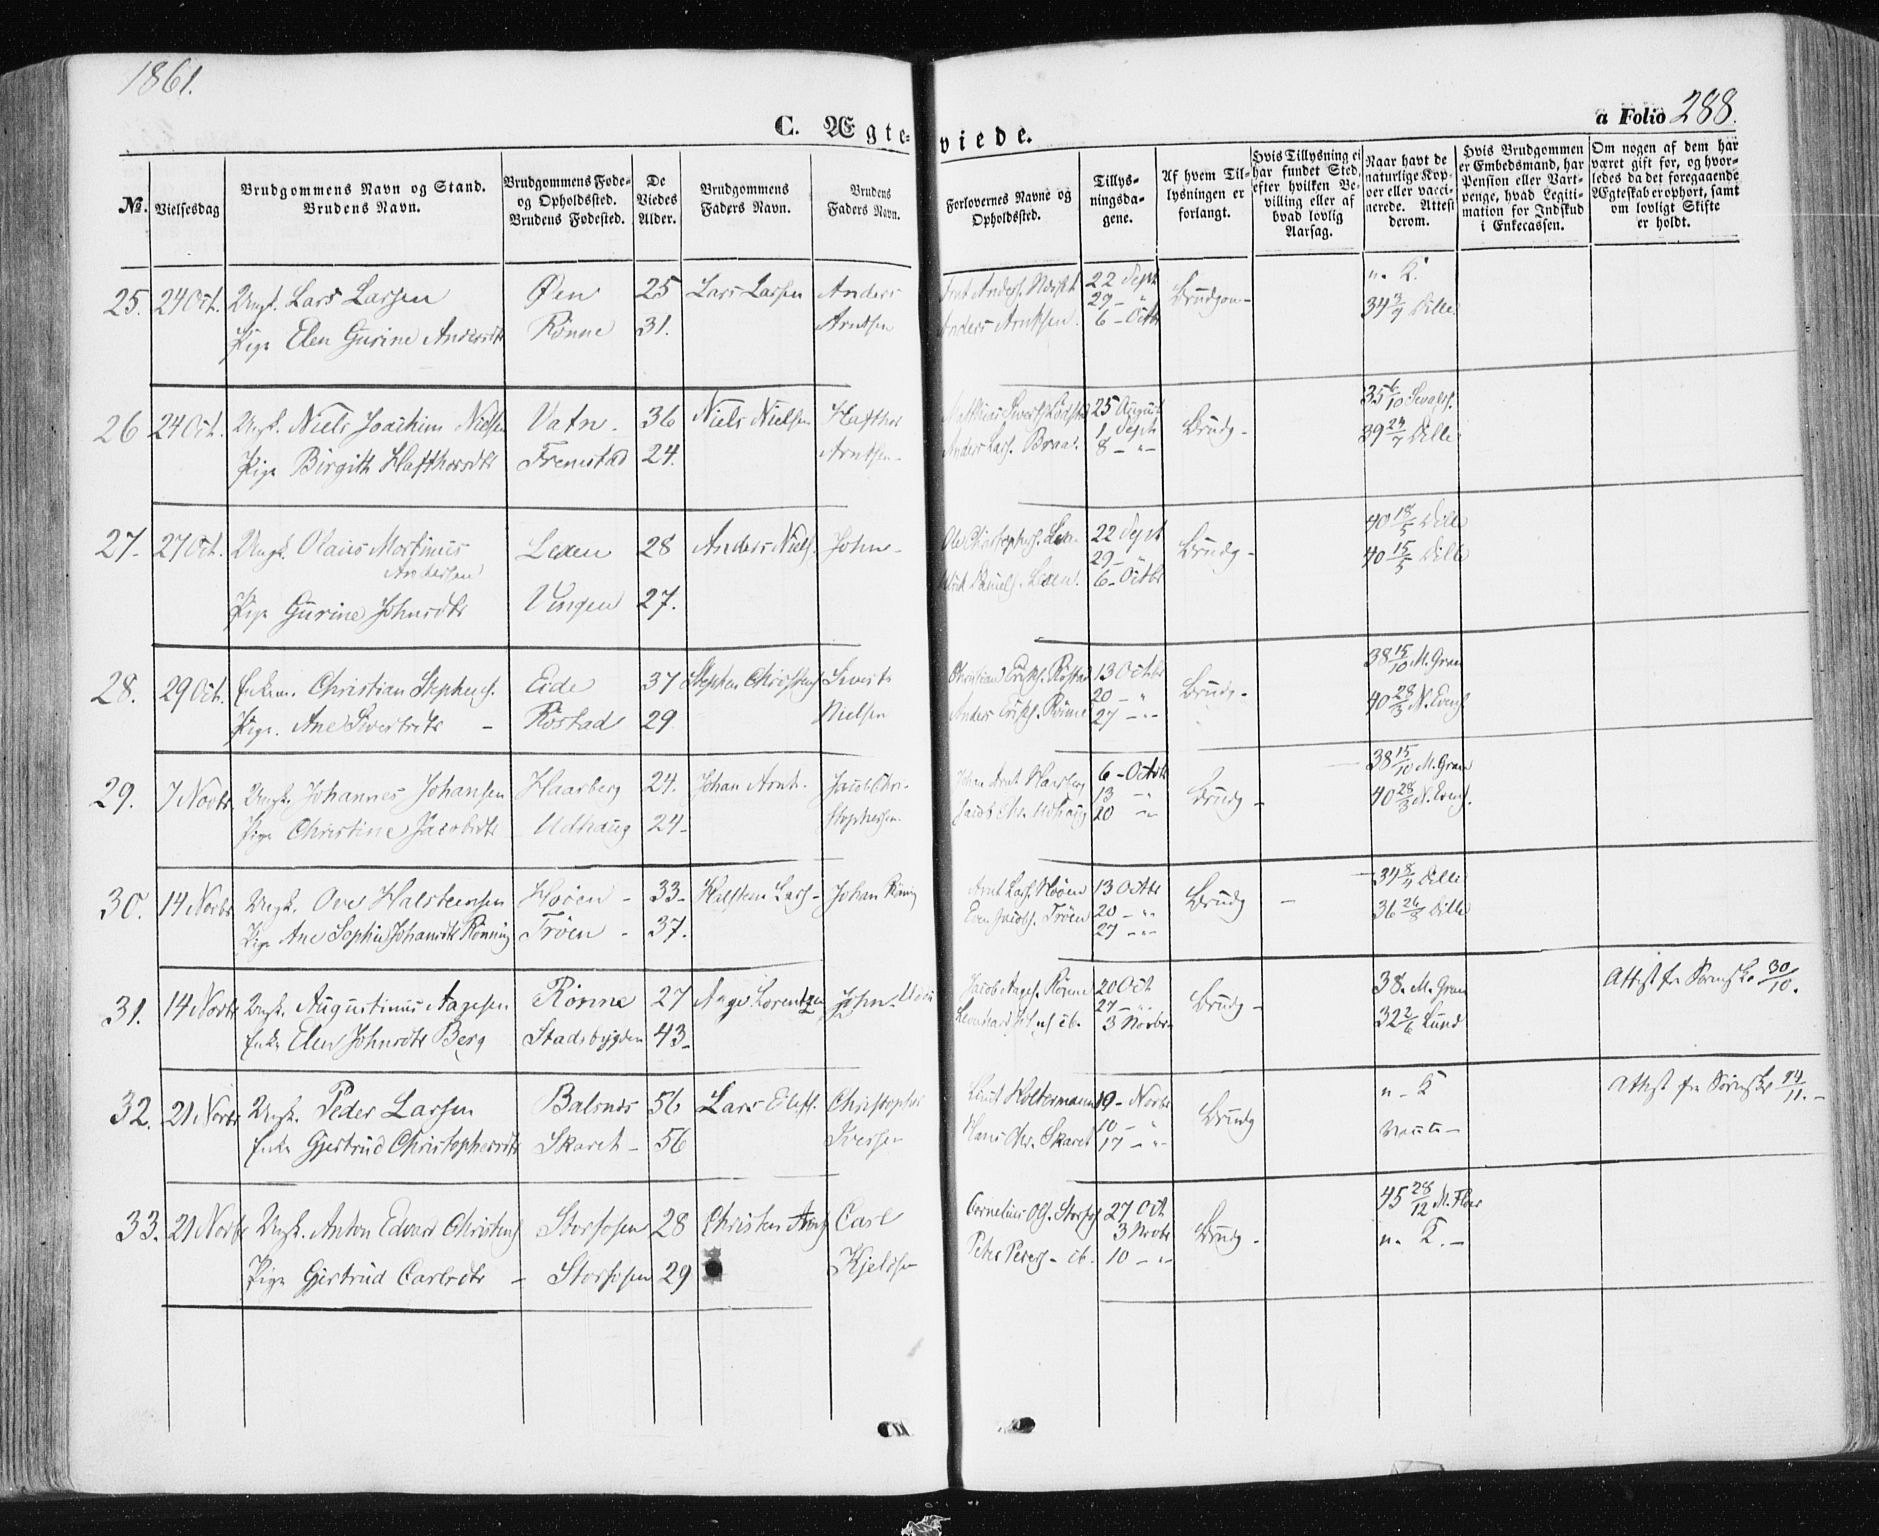 1861.
C. Ægteviede.
a Folio 288.
No.
Vielsesdag
Brudgommens Navn og Stand.
Brudens Navn.
Brudgommens Føde- og Opholdssted.
Brudens Fødested.
De Viedes Alder.
Brudgommens Faders Navn.
Brudens Faders Navn.
Forlovernes Navne og Opholdssted.
Tillysningsdagene.
Af hvem Tillysningen er forlangt.
Hvis Tillysning ei har fundet Sted, efter hvilken Bevilling eller af hvad lovlig Aarsag.
Naar havt de naturlige Kopper eller vaccinerede. Attest derom.
Hvis Brudgommen er Embedsmand, har Pension eller Vartpenge, hvad Legitimation for Indskud i Enkecassen.
Om nogen af dem har været gift før, og hvorledes da det foregaaende Ægteskab er ophørt, samt om lovligt Skifte er holdt.
25. 24 Oct. Ungk. Lars Larsen Øen 25 Lars Larsen Anders 22 Sept Brudgom- n. K.
Pige Elen Gurine Andersdtr Rønne 31. Arntsen Anders Arntsen. 29 - " 34 Dille
6 - Octbr
26 24 Oct. Ungk. Niels Joachim Nielsen Vatn. 36 Niels Nielsen Hafthor 25 August Brudg- 35 6/10
Pige Birgith Hafthorsdtr Fremstad 24. Arntsen- Anders Lars. Braa. 1 Sept 39 24/7 Dille
8 - " -
27. 27 Oct. Ungk. Olaus Martinus Andersen Lexen 28 Anders Niels. John- Ole Christophers. Lex. 22 Sept Brudg- 40 18/5 Dille
Pige Gurine Johnsdtr Vingen 27. Daniels. Lexen. 29 - 40 15/5 Dille
6 - Octbr
28. 29 Oct. Enkem. Christian Stephens. Eide 37 Stephen Christens Sivert Christian Eriks. Røstad 13 Octbr Brudg- 38 15/10 M. Gran
Pige. Ane Sivertsdtr - Røstad 29 Nielsen Anders Rønne 20 - " 40 28/3 N. Eveng
27 - " -
29. 7 Novbr Ungk. Johannes Johansen Haarberg 24. Johan Arnt. Jacob Chri- Johan Arnt. Haarberg 6 - Octbr Brudg- 38 15/10 M. Gran
Pige Christine Jacobsdtr Udhaug 24- stophersen. Jacob Chr. Udhaug 13 - " 40 28/3 N. Eveng.
20 - "
30. 14 Novbr Ungk. Ove Halsteensen Høien- 33- Lars- Johan Rønnig Arnt Lars. Høien 13 Octbr Brudg - 34 8/4 Dille
Pige Ane Sophie Johansdtr Rønning Trøen- 37. Even Jacobs. Trøen 20 - " 36 26/8 Dille
27 - " -
31. 14 Novbr Ungk. Augustinus Aagesen Rønne 27 Aage Lorentzen John Jacob Aages. Rønne 20 Oct Brudg- 38. M. Gran Attest fr Sorensk. 30/10.
Enke Elen Johnsdtr Berg Stadsbygden 43- ib. 27 - " - 32 2/6 Lund
3 Novbr-
32. 21 Novbr Ungk. Peder Larsen Balsnes 56 Lars Christopher Holtermann 19 - Novbr Brudg n. K Attest fr Sorensk. 14/11.-
Enke Gjertrud Christophersdtr Skaret- 56 Iversen Hans Chr. Skaret 10 - "
17 - " -
33. 21 Novbr Ungk. Anton Edvard Christens Storfosen 28 Christen Carl Cornelius Ols. Storfos 27 Oct Brudg. 45 28/12 M. Floer
Pige Gjertrud Carlsdtr - Storfosen 29 Kjelds- Peter Peters- ib. 3 Novbr n. K.-
10 - " -